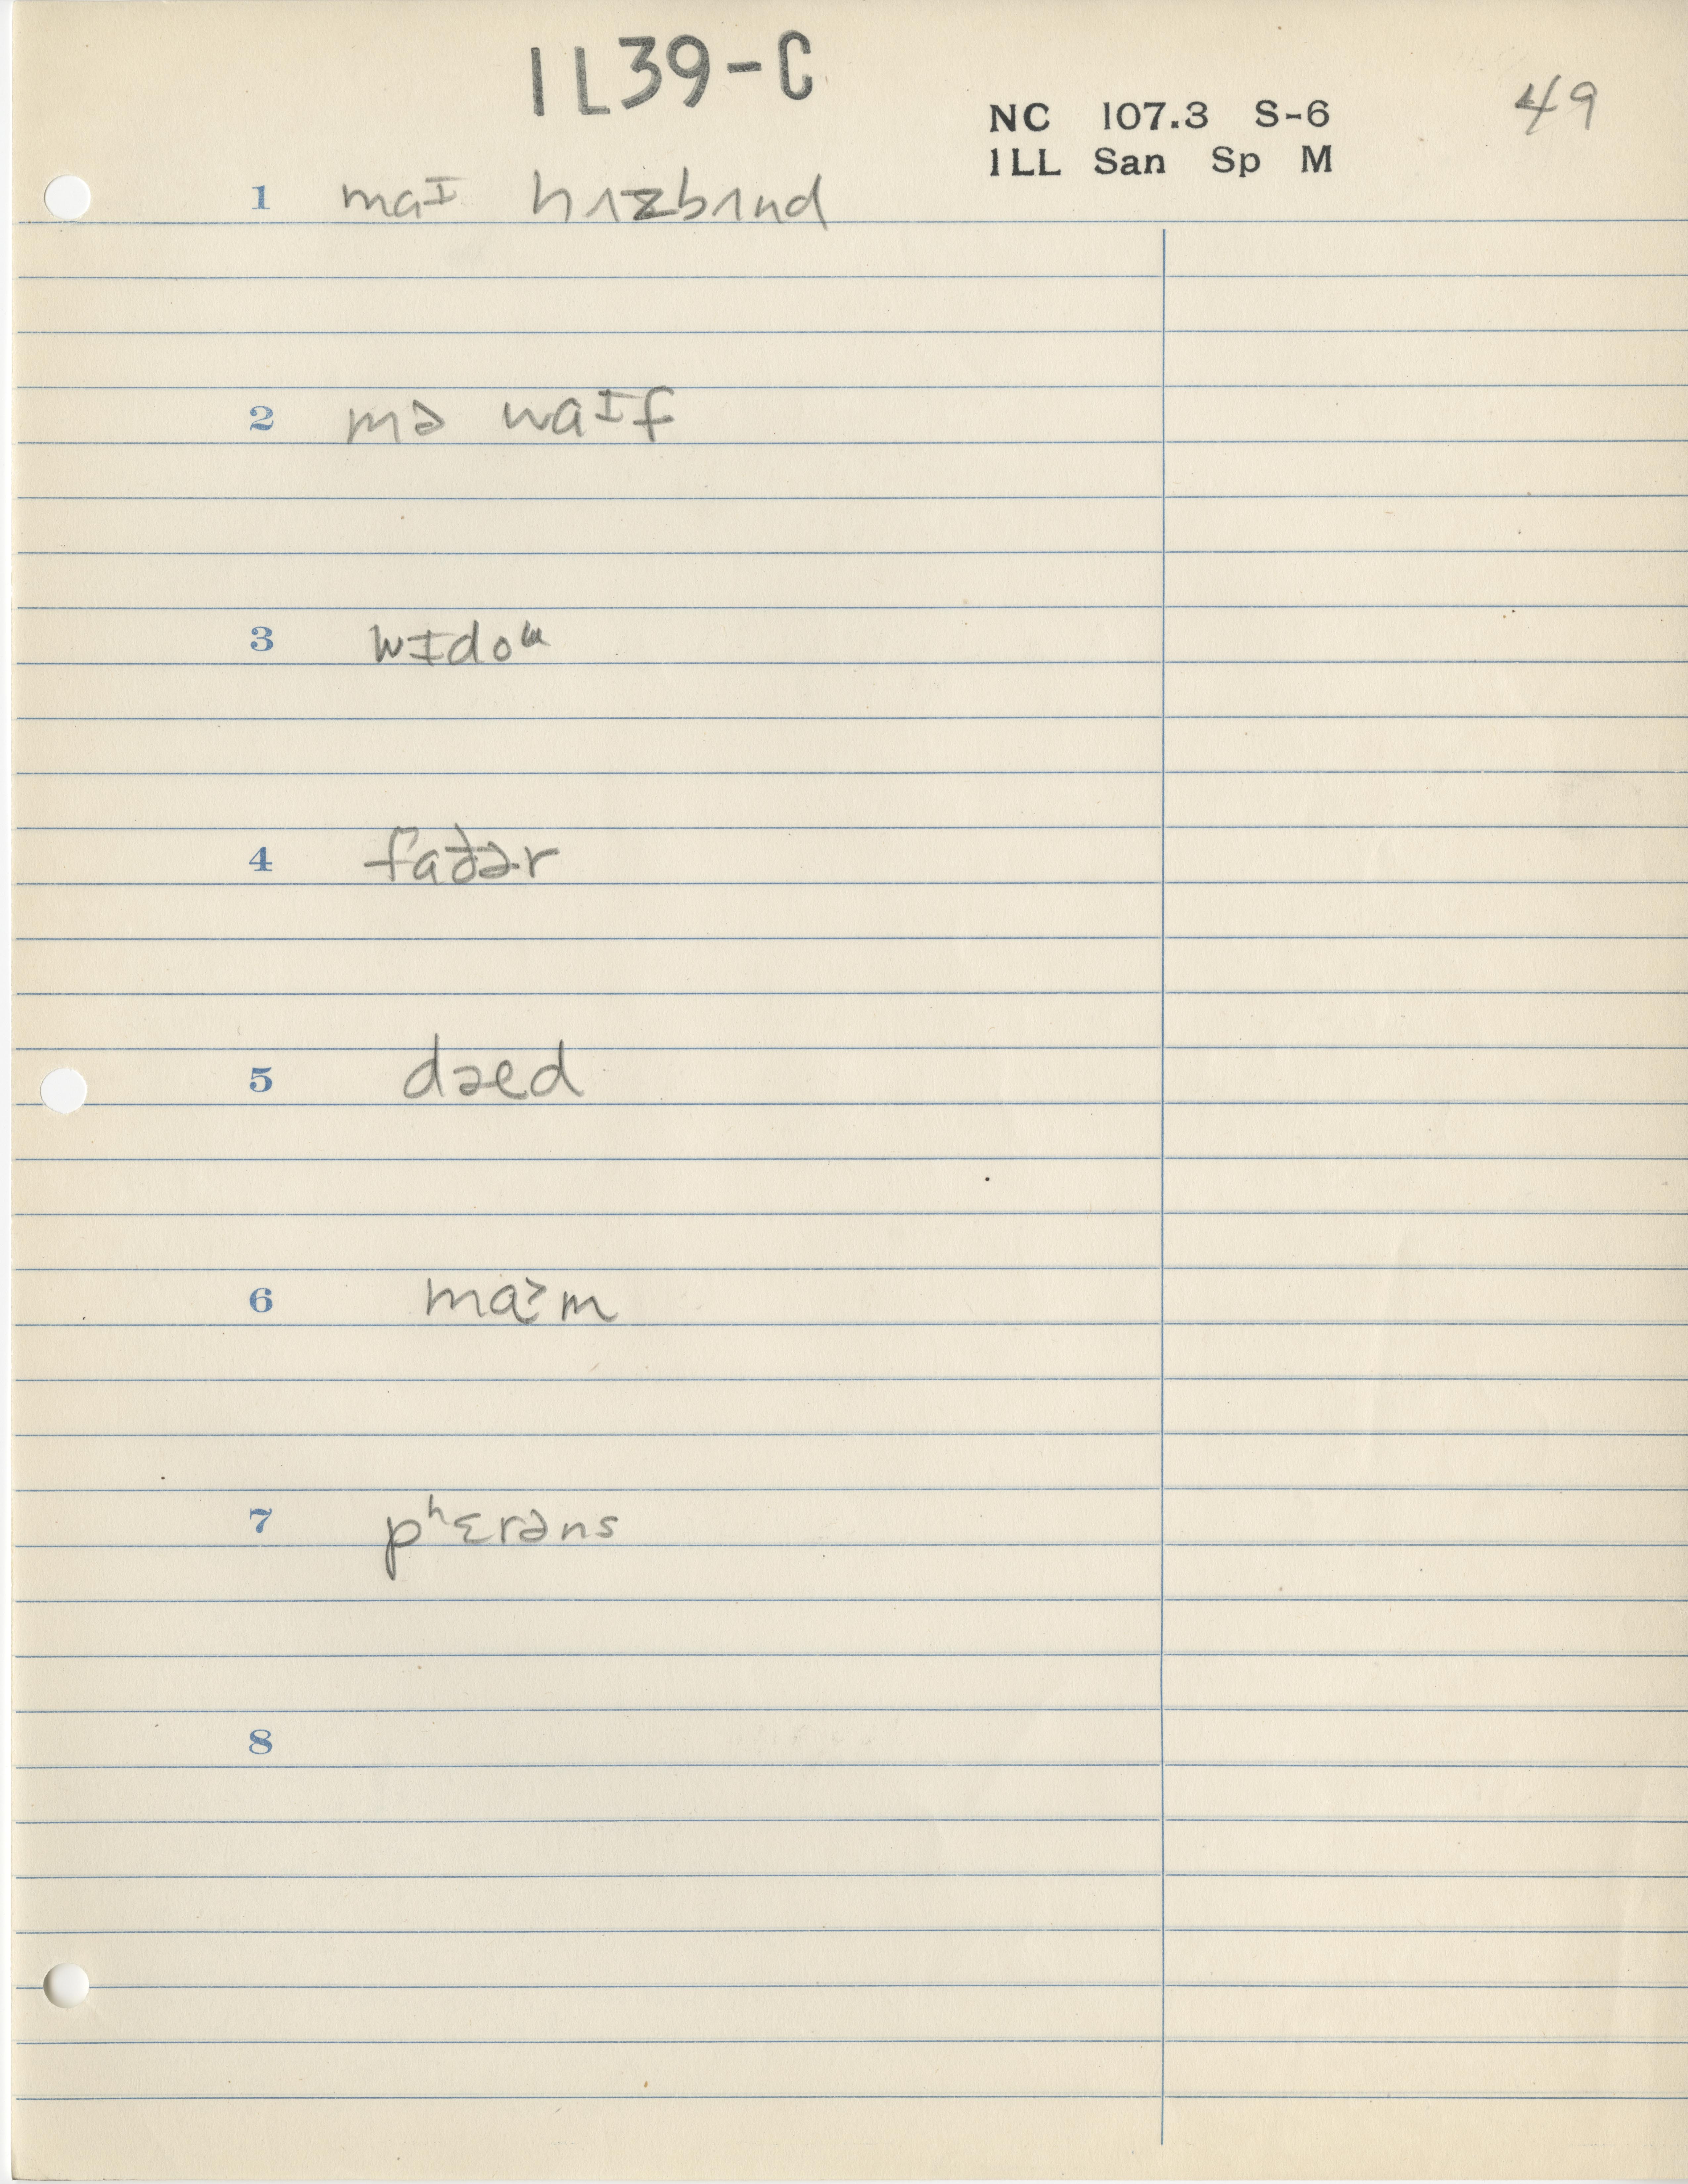 IL39-C
49
NC 107.3 S-6
ILL San Sp M
1 maɪ hʌzbʌnd
2 mə waɪf
3 wɪdoᵚ
4 faðər
5 dæed
6 maˀm
7 pʰɛrəns
8